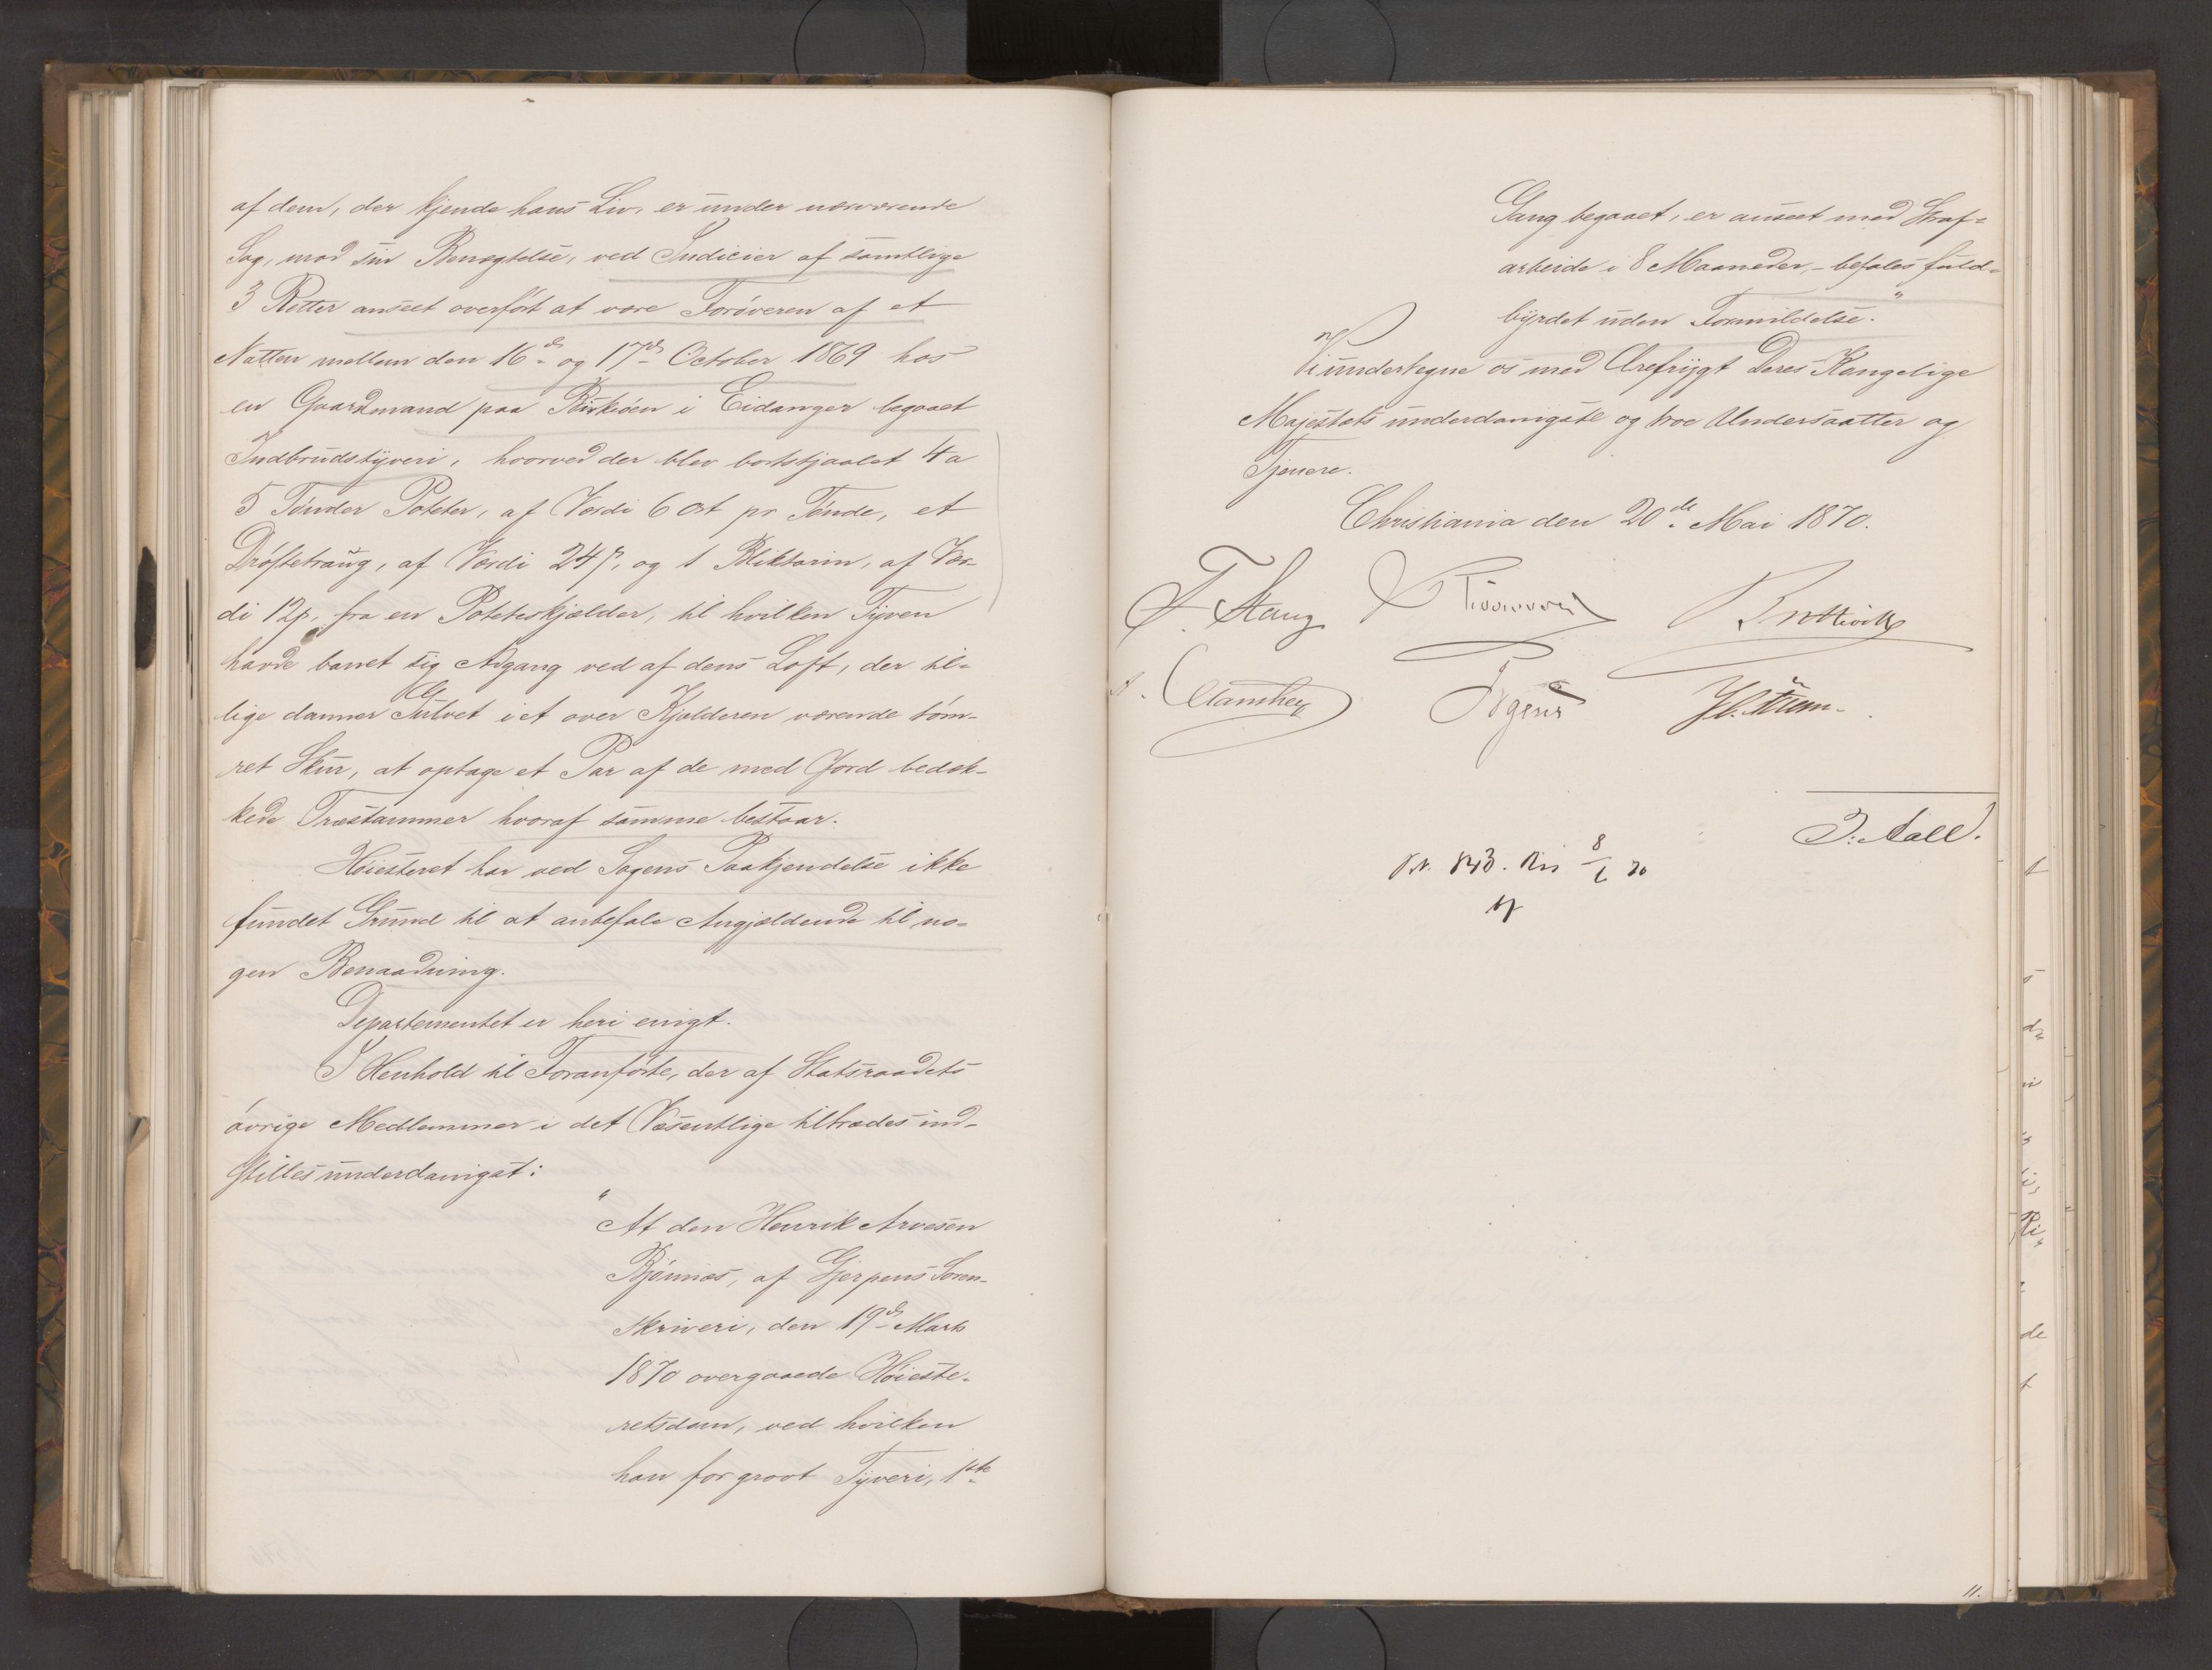 af dem, der kjende hans Liv, er under nærværende
Sag, mod sin Benægtelse, ved Indicier af samtlige
3 Retter anseet overført at være Forøveren af et
Natten mellem den 16de og 17de October 1869 hos
en Gaardmand paa Birkøen i Eidanger begaaet
Indbrudstyveri, hvorved der blev bortstjaalet 4 a
5 Tønder Poteter, af Værdi 6 Ort pr Tønde, et
Drøftetraug, af Værdi 24 β, og 1 Bliktarin, af Vær-
di 12 β, fra en Poteteskjælder, til hvilken Tyven
havde banet sig Adgang ved af dens Loft, der til-
lige danner Gulvet i et over Kjælderen værende töm-
ret Skur, at optage et Par af de med Jord bedæk-
kede Træstammer hvoraf samme bestaar.
Høiesteret har ved Sagens Paakjendelse ikke
fundet Grund til at anbefale Angjældende til no-
gen Benaadning.
Departementet er heri enigt.
I Henhold til Foranførte, der af Statsraadets
øvrige Medlemmer i det Væsentlige tiltrædes ind-
stilles underdanigst:
"At den Henrik Arvesen
Bjønnes, af Gjerpens Soren-
skriveri, den 19de Marts
1870 overgaaede Høieste-
retsdom, ved hvilken
han for grovt Tyveri, 1ste
Gang begaaet, er anseet med Straf-
arbeide i 8 Maaneder, - befales fuld-
byrdet uden Formildelse."
Vi undertegne os med Ærefrygt Deres Kongelige
Majestæts underdanigste og troe Undersaatter og
Tjenere.
Christiania den 20de Mai 1870.
F. Stang
Bretteville
Irgens
J. Aall.
843. 8/6 70
11.